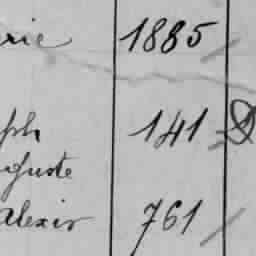 rie 1885
ph 141
guste
alexis 761